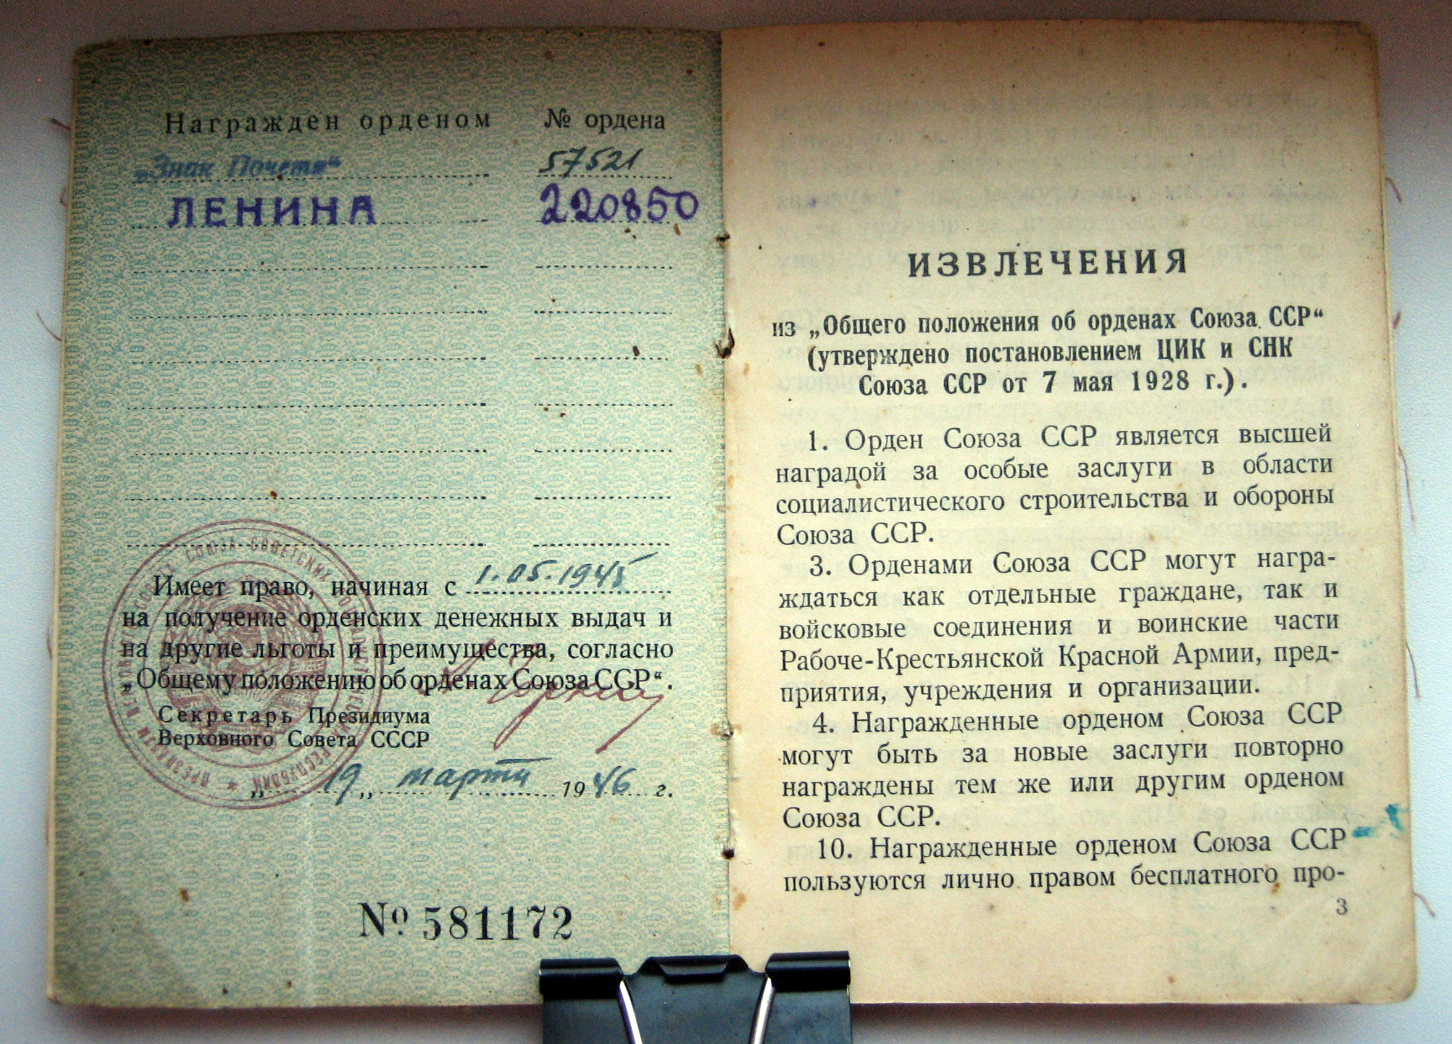 Награжден орденом № ордена
„Знак Почета“ 57521
ЛЕНИНА 220850
Имеет право, начиная с 1.05.1945
на получение орденских денежных выдач и
на другие льготы и преимущества, согласно
„Общему положению об орденах Союза ССР“.
Секретарь Президиума
Верховного Совета СССР
„19„ марта 1946 г.
№ 581172
ИЗВЛЕЧЕНИЯ
из „Общего положения об орденах Союза ССР“
(утверждено постановлением ЦИК и СНК
Союза ССР от 7 мая 1928 г.).
1. Орден Союза ССР является высшей
наградой за особые заслуги в области
социалистического строительства и обороны
Союза ССР.
3. Орденами Союза ССР могут награ-
ждаться как отдельные граждане, так и
войсковые соединения и воинские части
Рабоче-Крестьянской Красной Армии, пред-
приятия, учреждения и организации.
4. Награжденные орденом Союза ССР
могут быть за новые заслуги повторно
награждены тем же или другим орденом
Союза ССР.
10. Награжденные орденом Союза ССР
пользуются лично правом бесплатного про-
3